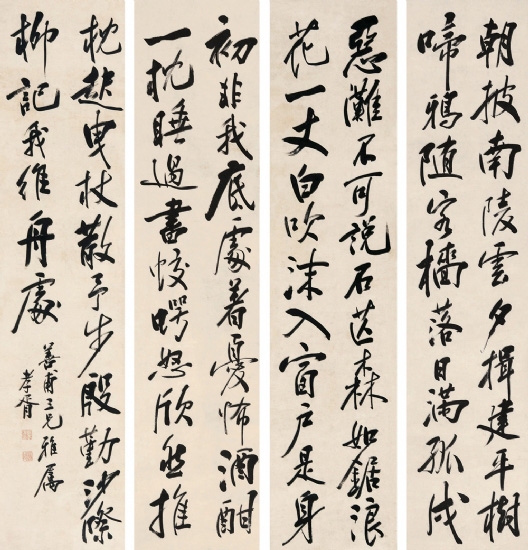 朝披南陵雲夕揖建平樹
啼鴉隨客檣落日滿孤戍
惡灘不可說石芒森如鋸浪
花一丈白吹沫入窗戶是身
初非我底處著憂怖酒酣
一枕睡過盡蛟鱷怒欣然推
枕起曳杖散予步殷勤沙際
柳記我維舟處
善甫三兄雅屬
孝胥